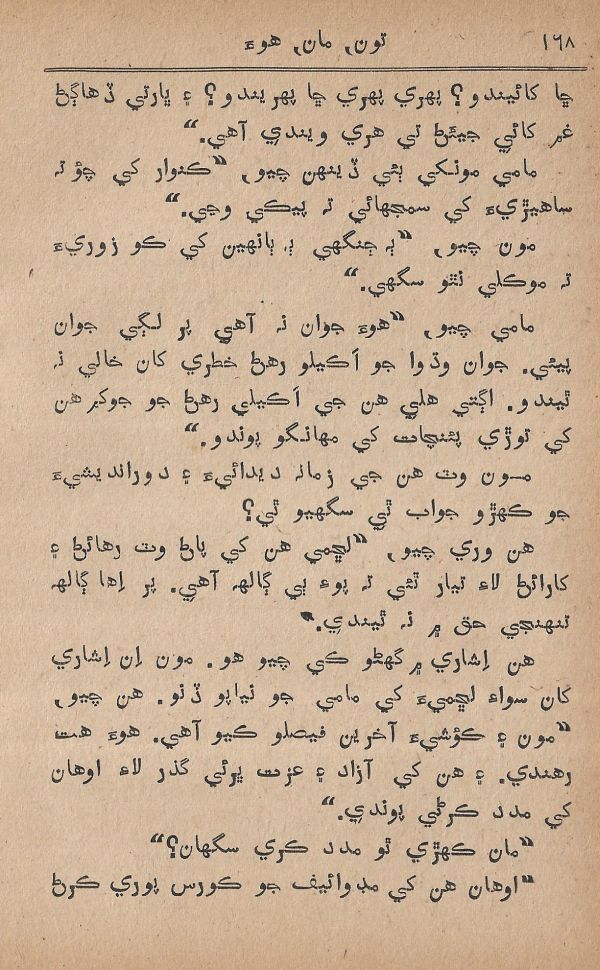 ١٦٨ تون، مان، هوءَ
ڇا کائيندو؟ پهري پهري ڇا پهريندو؟ ۽ ڀارتي ڏهاڳڻ
غم کائي جيئڻ تي هري ويندي آهي.“
مامي مونکي ٻئي ڏينهن چيو، “ڪنوار کي چؤ ته
ساهيڙيءَ کي سمجهائي ته پيڪي وڃي.“
مون چيو، “ٻه ڄنگهي ٻه ٻانهين کي ڪو زوريءَ
ته موڪلي نٿو سگهي.“
مامي چيو، “هوءَ جوان نه آهي پر لڳي جوان
پيئي. جوان وڌوا جو اَڪيلو رهڻ خطري کان خالي نه
ٿيندو. اڳتي هلي هن جي اَڪيلي رهڻ جو جوکم هن
کي توڙي پئنچات کي مهانگو پوندو.“
مون وٽ هن جي زمانه ديدائيءَ ۽ دورانديشيءَ
جو ڪهڙو جواب ٿي سگهيو ٿي؟
هن وري چيو، “لڇمي هن کي پاڻ وٽ رهائڻ ۽
کارائڻ لاءِ تيار ٿئي ته پوءِ ٻي ڳالهه آهي. پر اِها ڳالهه
تنهنجي حق ۾ نه ٿيندي.“
هن اِشاري ۾ گهڻو ڪي چيو هو. مون اِن اِشاري
کان سواءِ لڇميءَ کي مامي جو نياپو ڏنو. هن چيو،
“مون ۽ ڪؤشيءَ آخرين فيصلو ڪيو آهي. هوءَ هت
رهندي. ۽ هن کي آزاد ۽ عزت ڀرئي گذر لاءِ اوهان
کي مدد ڪرڻي پوندي.“
“مان ڪهڙي ٿو مدد ڪري سگهان؟“
“اوهان هن کي مڊوائيف جو ڪورس پوري ڪرڻ